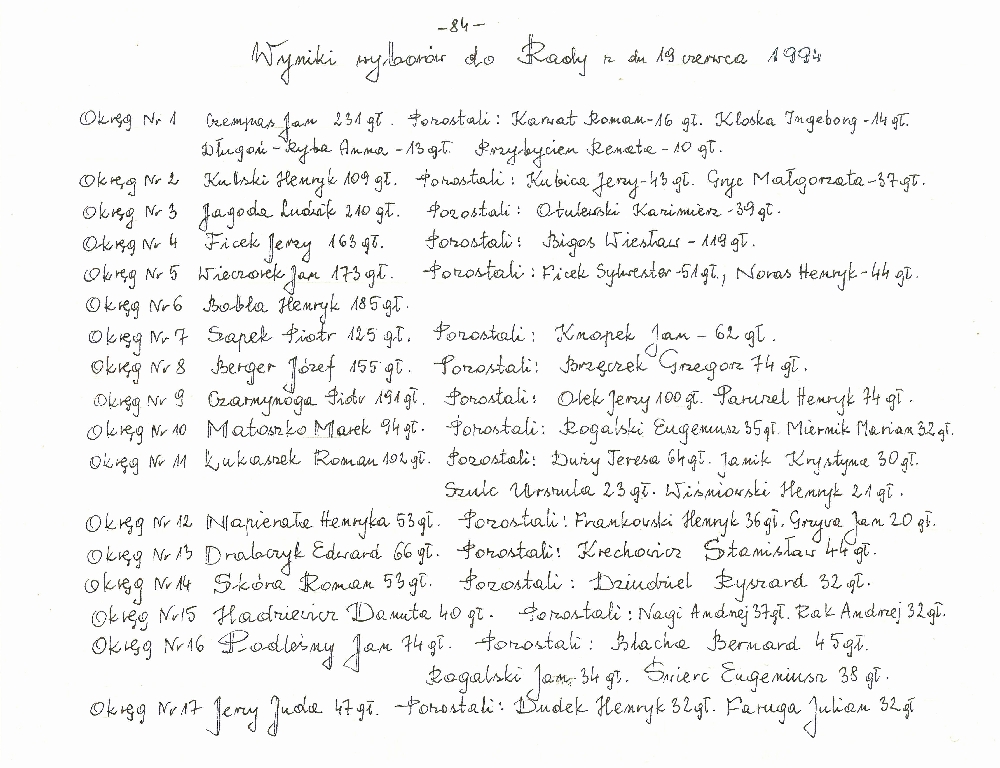 -84-
Wyniki wyborów do Rady z dn 19 czerwca 1994
Okręg Nr 1 Czempas Jan 231 gł. Pozostali: Karwat Roman-16 gł. Kloska Ingeborg-14gł.
Długoń-Ryba Anna -13gł. Przybycien Renata -10 gł.
Okręg Nr 2 Kulski Henryk 109 gł. Pozostali: Kubica Jerzy-43 gł. Gryc Małgorzata-37gł.
Okręg Nr 3 Jagoda Ludwik 210 gł. Pozostali: Otulewski Kazimierz -39 gł.
Okręg Nr 4 Ficek Jerzy 163 gł. Pozostali: Bigos Wiesław - 119 gł.
Okręg Nr 5 Wieczorek Jan 173 gł. Pozostali: Ficek Sylwester-51 gł, Noras Henryk-44 gł.
Okręg Nr 6 Bobła Henryk 185 gł.
Okręg Nr 7 Sapek Piotr 125 gł. Pozostali: Knapek Jan - 62 gł.
Okręg Nr 8 Berger Józef 155 gł. Pozostali: Brzęczek Grzegorz 74 gł.
Okręg Nr 9 Czarnynoga Piotr 191 gł. Pozostali: Olek Jerzy 100 gł. Paruzel Henryk 74 gł.
Okręg Nr 10 Matoszko Marek 94 gł. Pozostali: Rogalski Eugeniusz 35 gł. Miernik Marian 32 gł.
Okręg Nr 11 Łukaszek Roman 102 gł. Pozostali: Duży Teresa 64 gł. Janik Krystyna 30 gł.
Szulc Urszula 23 gł. Wiśniowski Henryk 21 gł.
Okręg Nr 12 Napierała Henryka 53 gł. Pozostali: Frankowski Henryk 36 gł. Gryva Jan 20 gł.
Okręg Nr 13 Drabczyk Edward 66 gł. Pozostali: Krechowicz Stanisław 44 gł.
Okręg Nr 14 Skóra Roman 53 gł. Pozostali: Dziudziel Ryszard 32 gł.
Okręg Nr 15 Hadziewicz Danuta 40 gł. Pozostali: Nagi Andrzej 37gł. Rak Andrzej 32 gł.
Okręg Nr 16 Podleśny Jan 74 gł. Pozostali: Błacha Bernard 45 gł.
Rogalski Jan 34 gł. Świerc Eugeniusz 38 gł.
Okręg Nr 17 Jerzy Juda 47 gł. Pozostali: Dudek Henryk 32 gł. Faruga Julian 32 gł